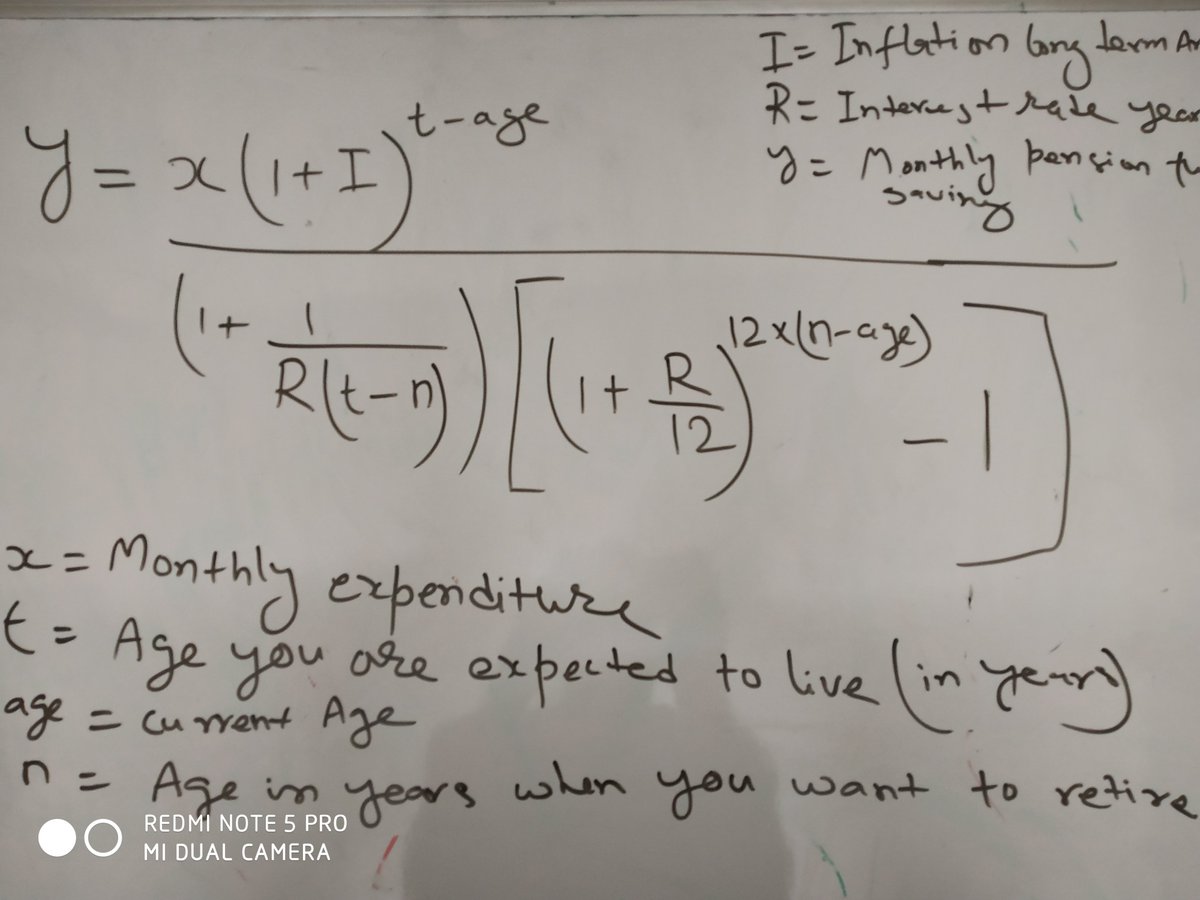 I = Inflation long term
R = Interest rate
y = Monthly pension
saving
y = x(1+I)^(t-age)
(1 + 1/R(t-n)) [(1 + R/12)^(12x(n-age)) - 1]
x = Monthly expenditure
t = Age you are expected to live (in years)
age = current Age
n = Age in years when you want to retire
REDMI NOTE 5 PRO
MI DUAL CAMERA